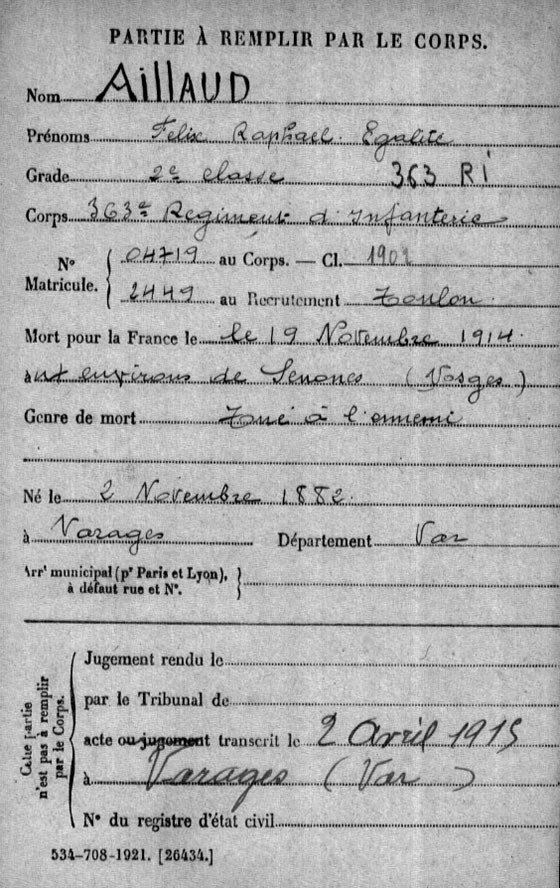 PARTIE À REMPLIR PAR LE CORPS.
Nom AILLAUD
Prénoms Felix Raphael Egalité
Grade 2e classe 363 RI
Corps 363e Regiment d'Infanterie
No Matricule. 04719 au Corps. — Cl. 1902
2449 au Recrutement Toulon
Mort pour la France le le 19 Novembre 1914
aux environs de Senones (Vosges)
Genre de mort Tué à l'ennemi
Né le 2 Novembre 1882
à Varages Département Var
Arrt municipal (pr Paris et Lyon), à défaut rue et No.
Cette partie n'est pas à remplir par le Corps.
Jugement rendu le
par le Tribunal de
acte ou jugement transcrit le 2 Avril 1915
à Varages (Var)
No du registre d'état civil
534-708-1921. [26434.]